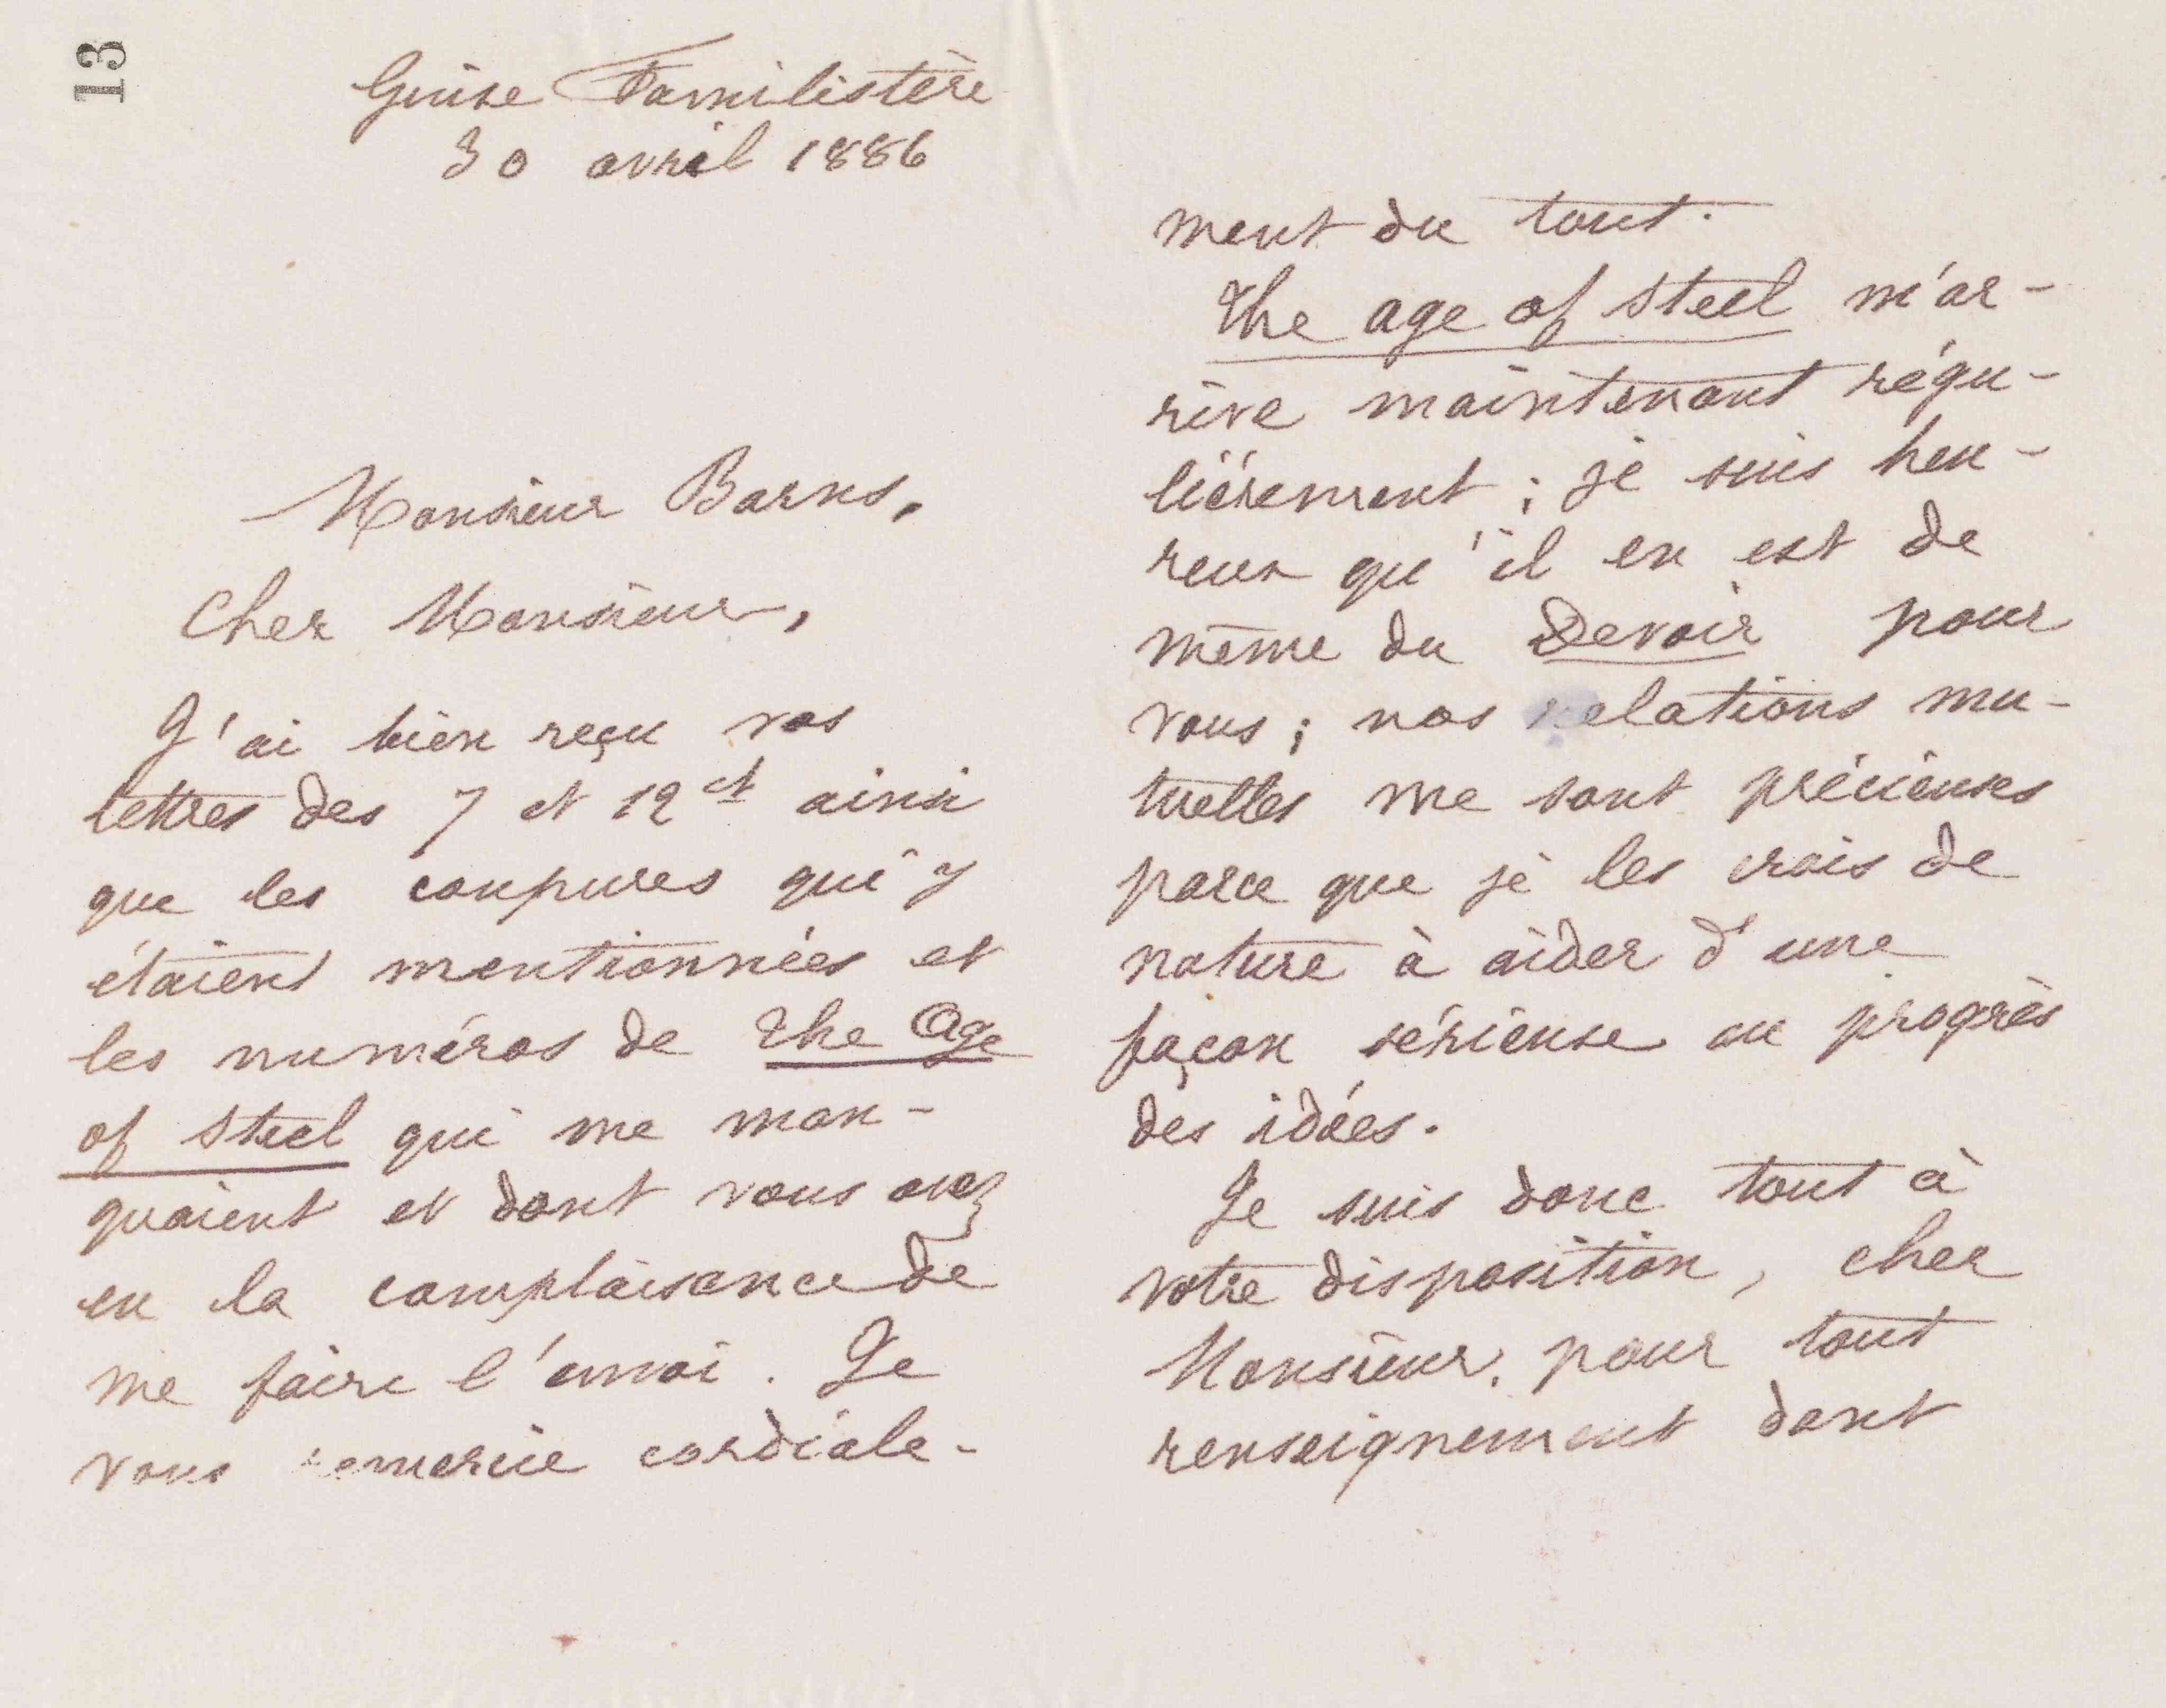 13
Guise Familistère
30 avril 1886
Monsieur Barns,
Cher Monsieur,
J'ai bien reçu vos
lettres des 7 et 12 ct ainsi
que les coupures qui y
étaient mentionnées et
les numéros de The Age
of Steel qui me man-
quaient et dont vous avez
eu la complaisance de
me faire l'envoi. Je
vous remercie cordiale-
ment du tout.
The age of steel m'ar-
rive maintenant régu-
lièrement ; je suis heu-
reux qu'il en est de
même du Devoir pour
vous ; nos relations mu-
tuelles me sont précieuses
parce que je les crois de
nature à aider d'une
façon sérieuse au progrès
des idées.
Je suis donc tout à
votre disposition, cher
Monsieur, pour tout
renseignement dont